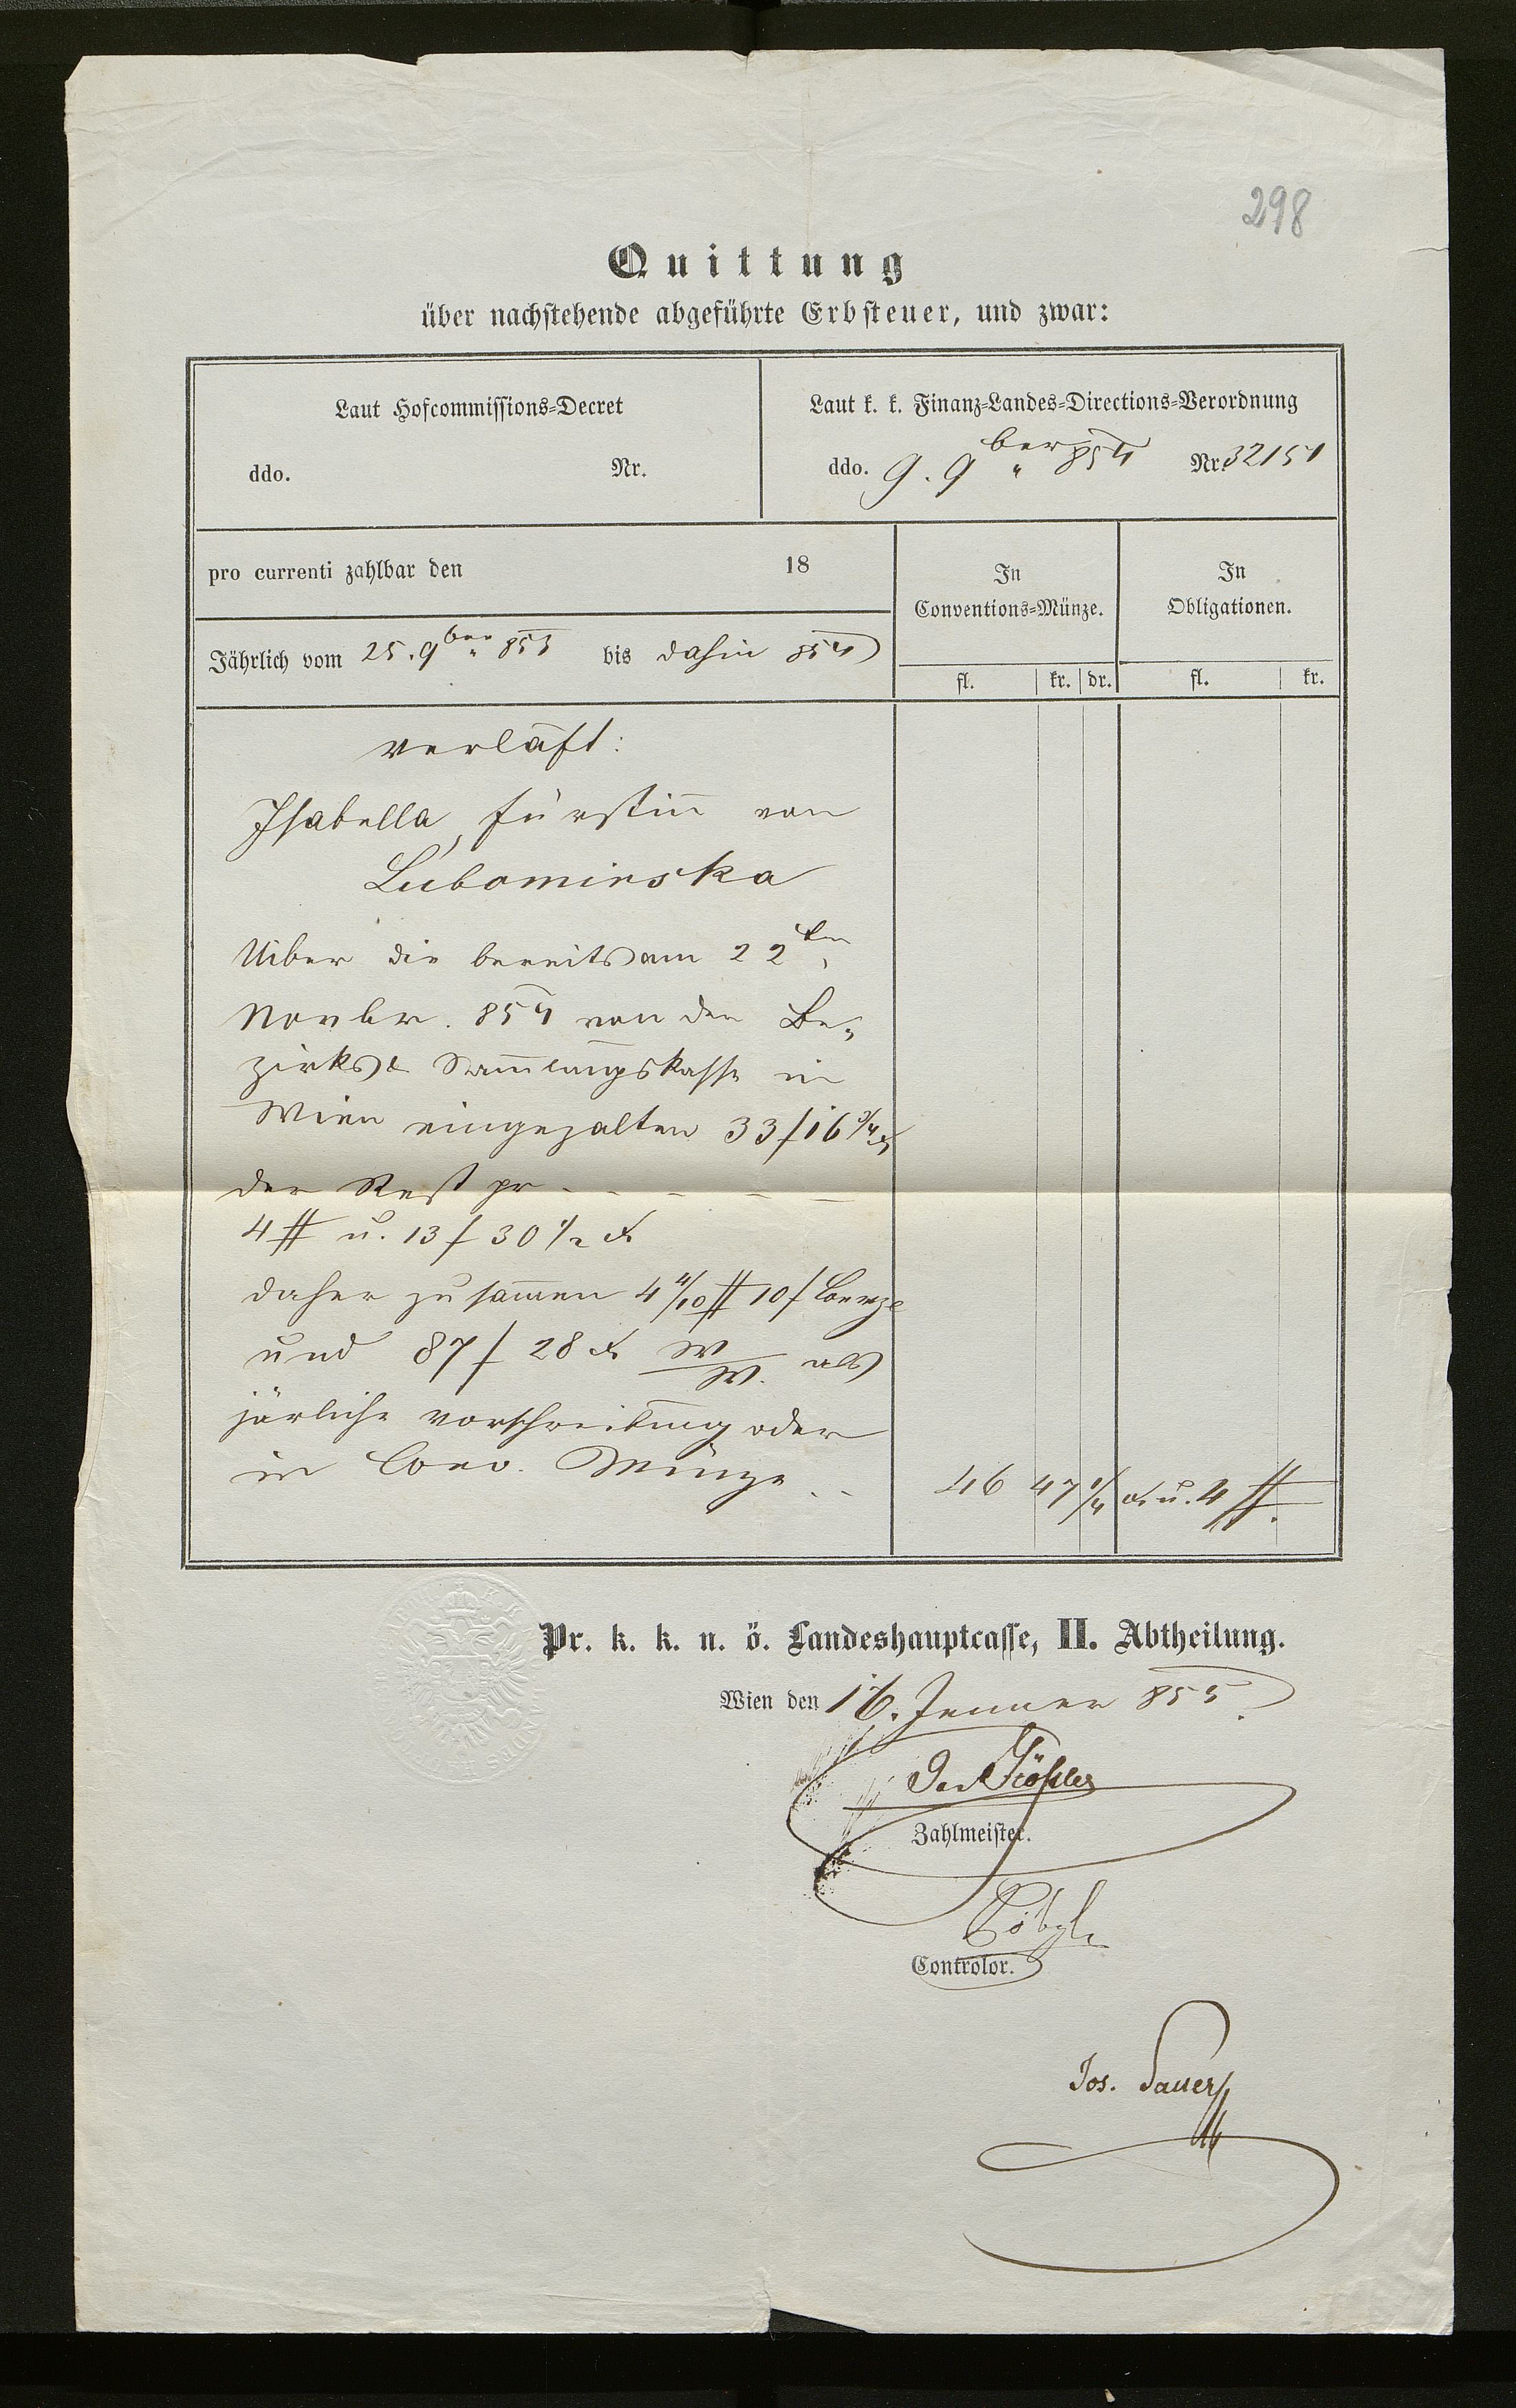 298
Quittung
über nachstehende abgeführte Erbsteuer, und zwar:
Laut Hofcommissions-Decret
ddo. Nr.
Laut k. k. Finanz-Landes-Directions-Verordnung
ddo. 9. 9ber 854 Nr. 32151
pro currenti zahlbar den 18
Jährlich vom 25. 9ber 853 bis dahin 854
In Conventions-Münze.
In Obligationen.
fl. kr. dr. fl. kr.
verläßt:
Isabella, Fürstin von
Lubomirska
Uiber die bereits am 22ten
Novbr. 854 von der Be-
zirks & Sammlungskasse in
Wien eingezalten 33 f 16 3/4 x
der Rest pr - - - - -
4 # u. 13 f 30 1/2 x
daher zusammen 4 4/10 # 10 f
und 87 f 28 x W W. als
järliche vorschreibung oder
in Conv. Münze . . 46 47 1/4 x. u. 4 #.
Pr. k. k. n. ö. Landeshauptcasse, II. Abtheilung.
Wien den 16. Jenner 855.
Zahlmeister.
Controlor.
Jos. Sauer